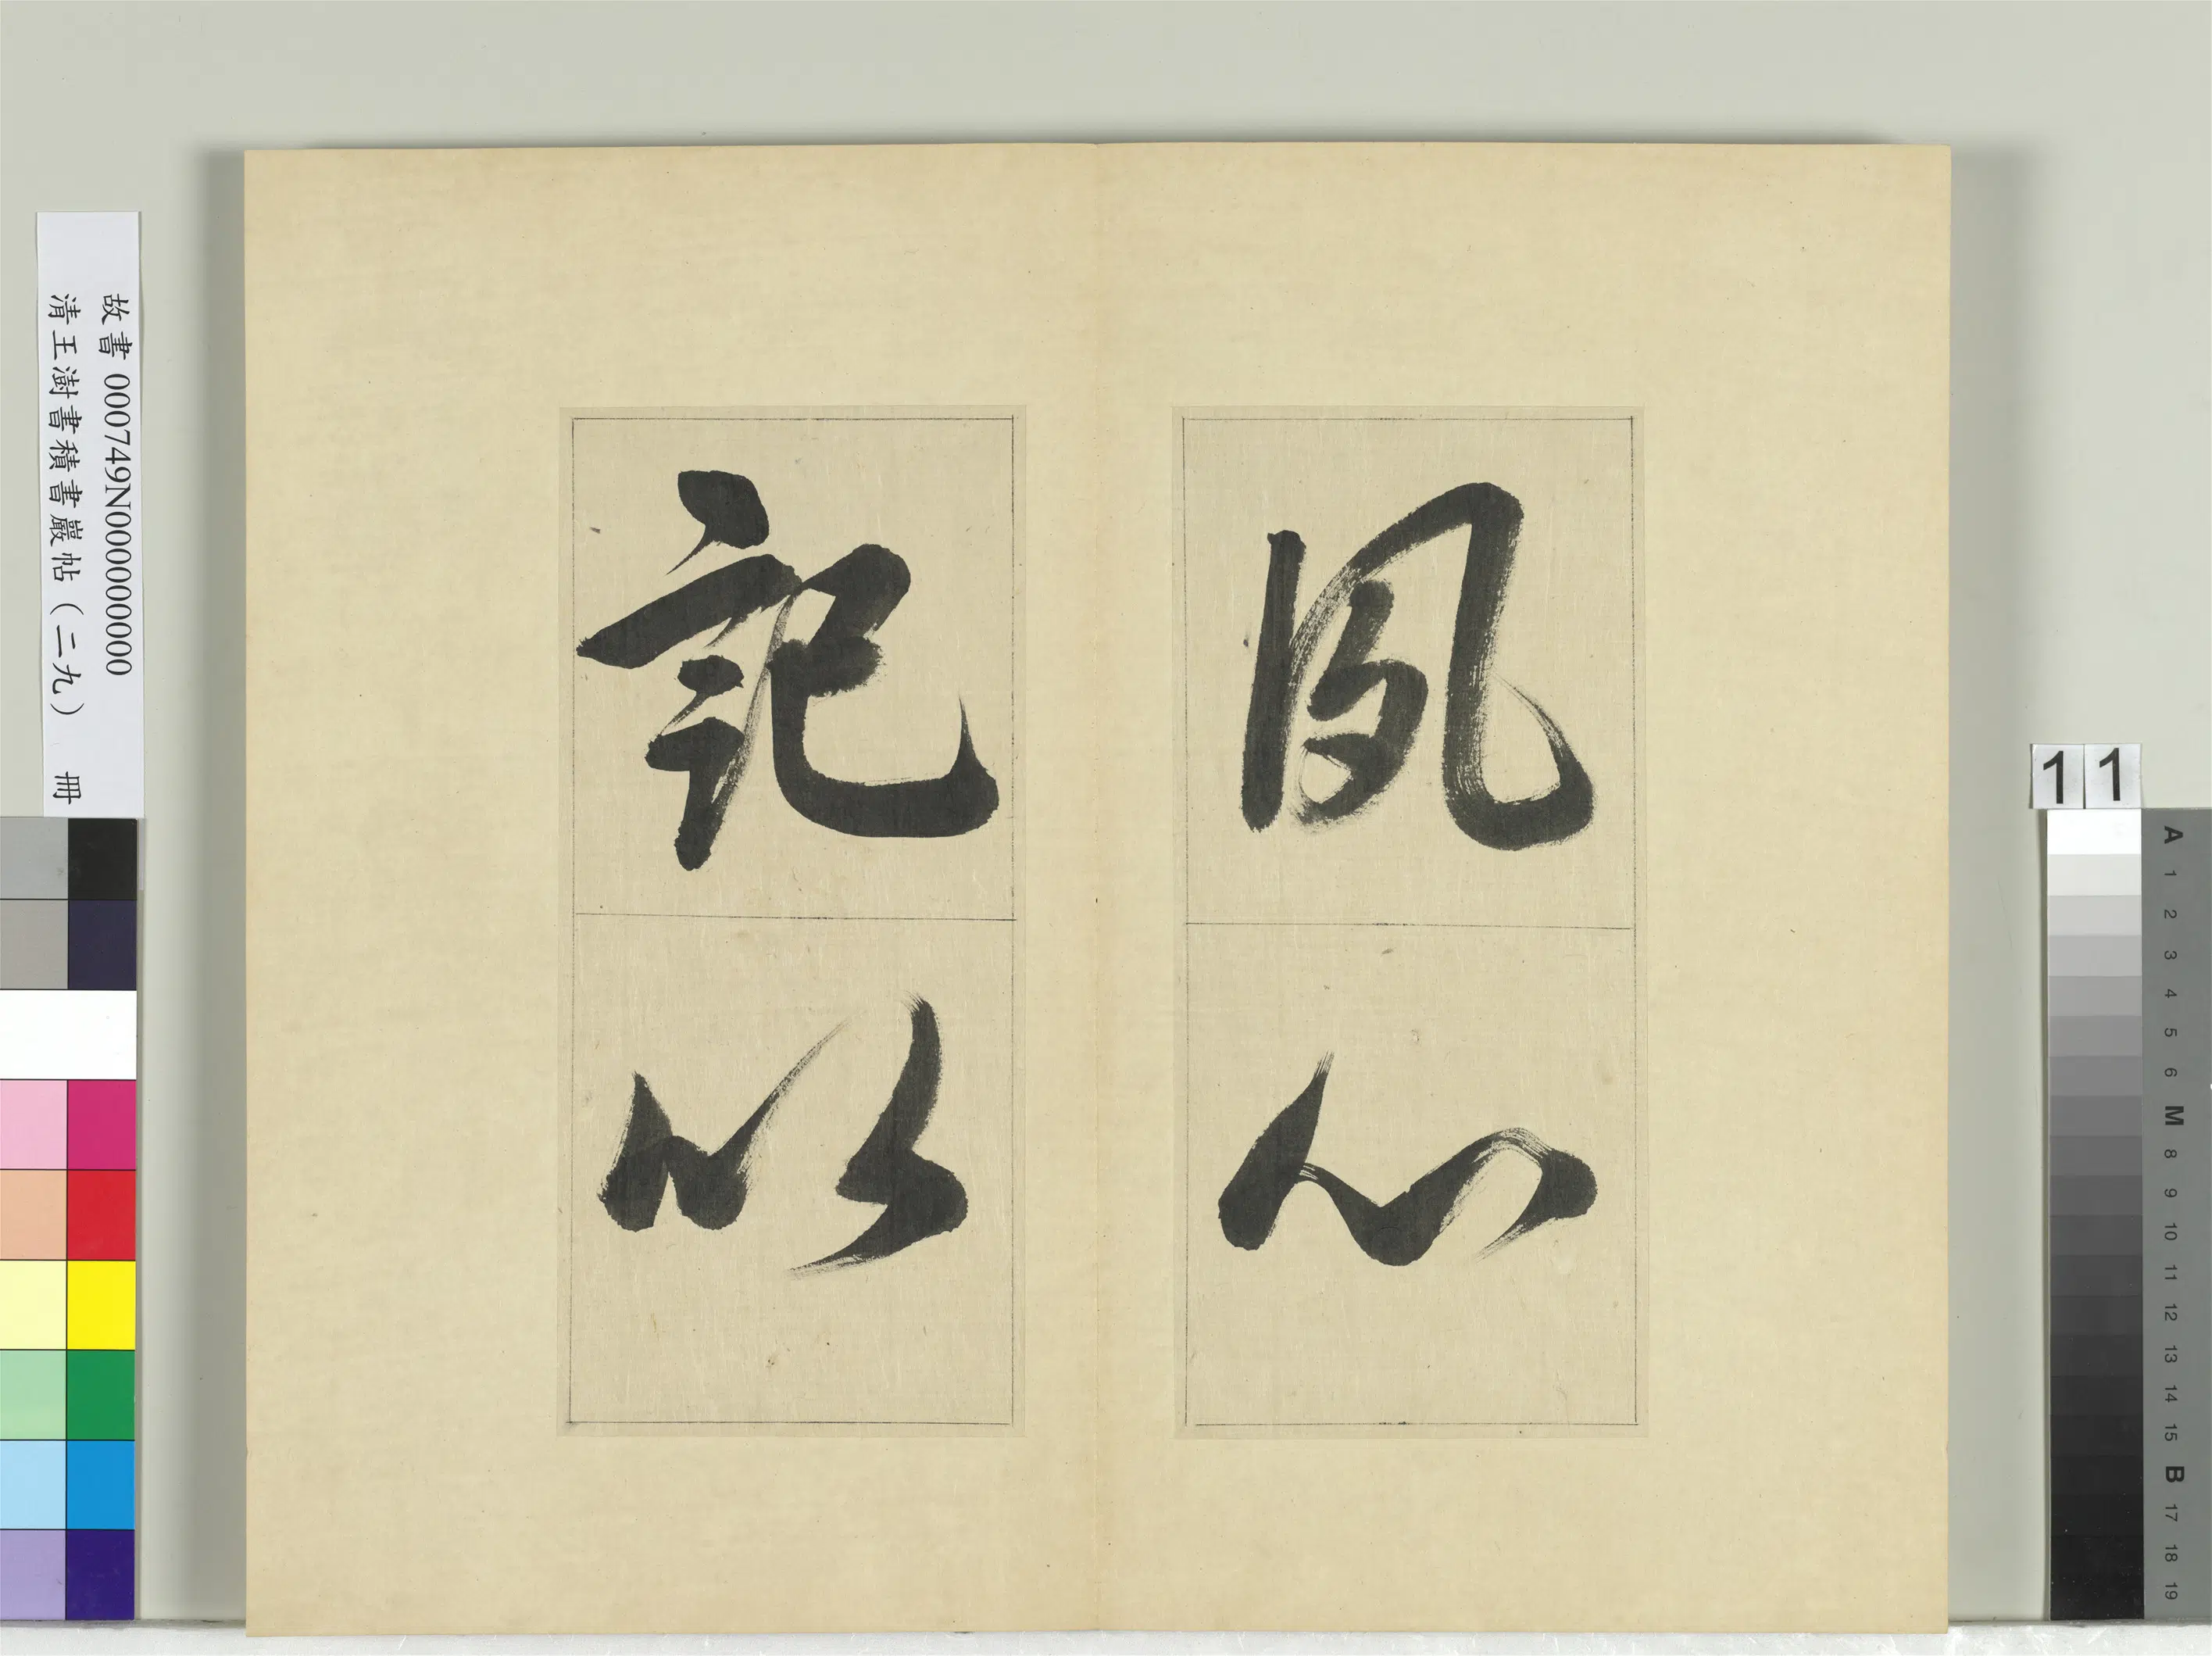 夙心
記以
故書 000749N000000000
清王澍書積書巖帖（二九） 冊
11
A 1 2 3 4 5 6 M 8 9 10 11 12 13 14 15 B 17 18 19